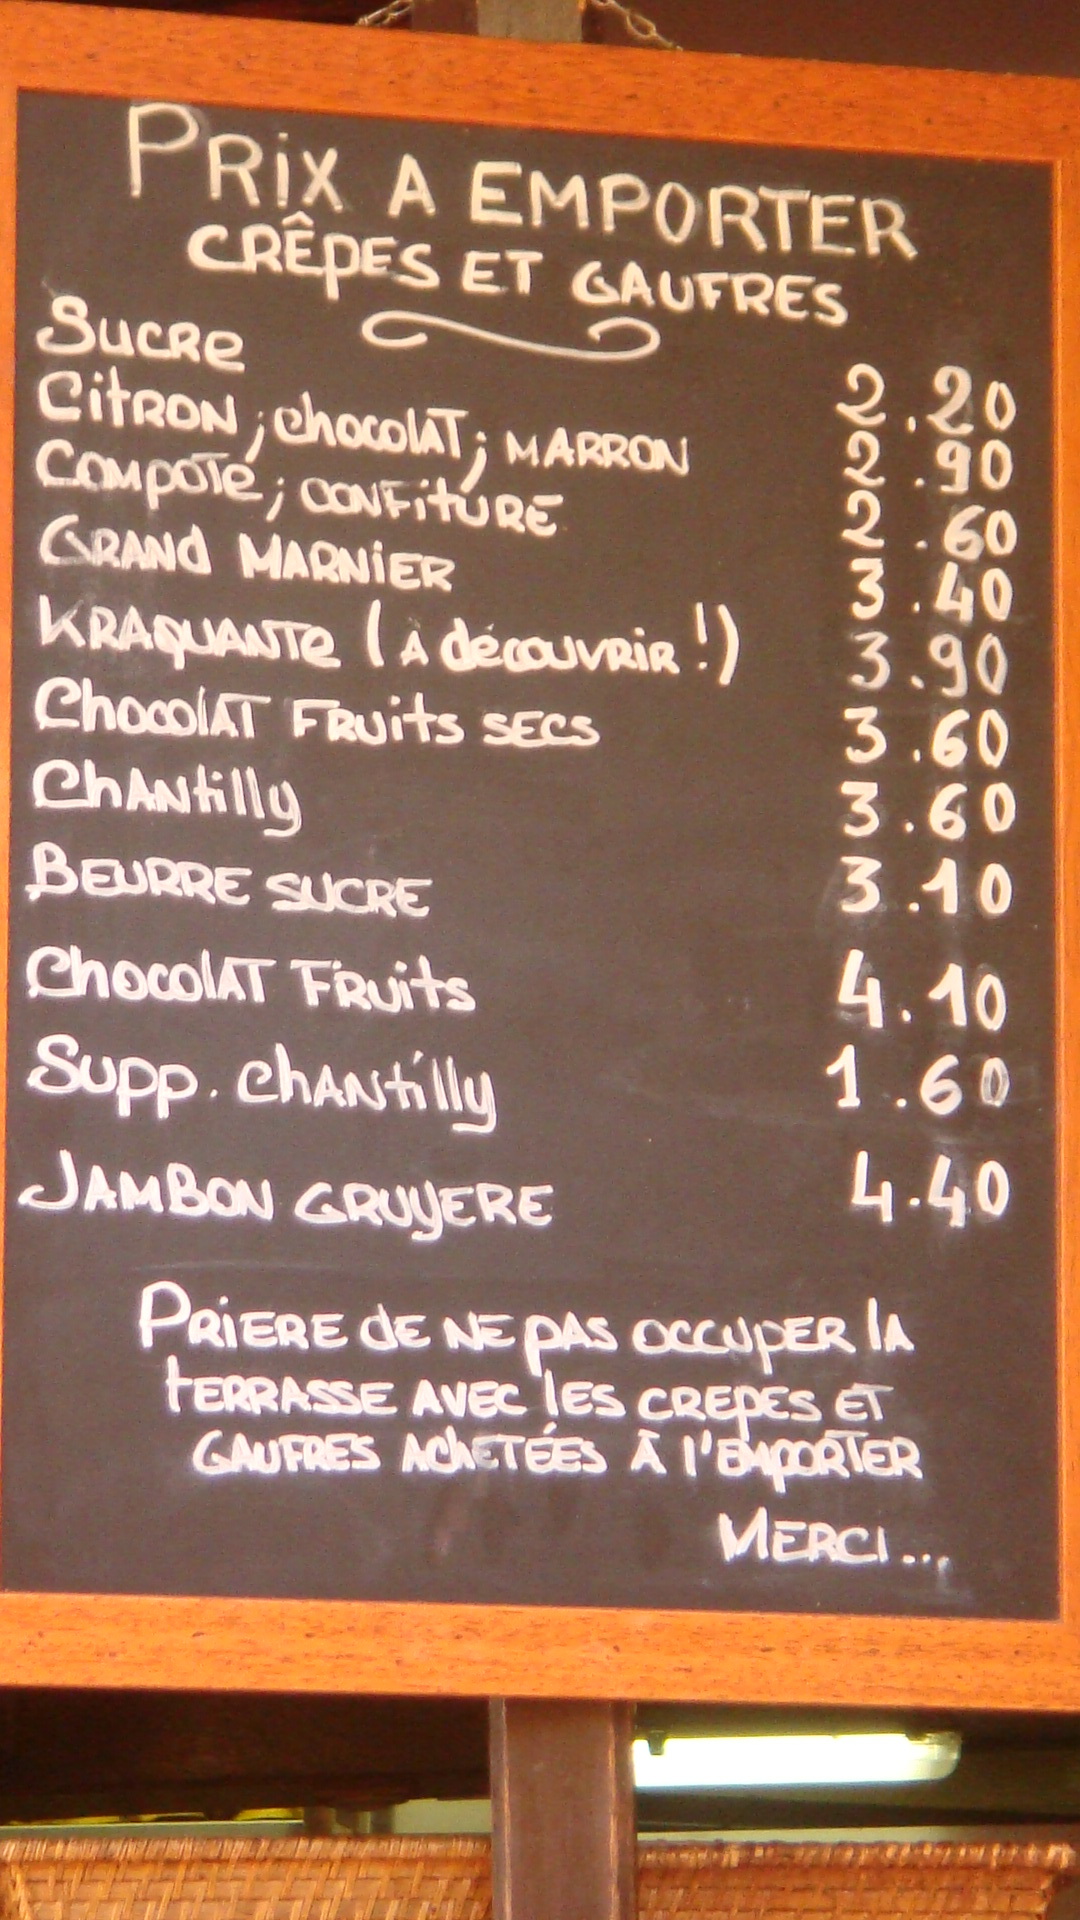 PRiX A EMPORTER
CRÊPES ET GAUFRES
Sucre 2.20
CitRON ; chocolAT ; MARRON 2.90
Compote ; CONFiTURE 2.60
GRANd MARNiER 3.40
KRAQUANTe ( À décOUVRiR ! ) 3.90
ChocolAT FRuits SECS 3.60
ChANtilly 3.60
BEURRE SUCRE 3.10
ChocolAT FRuits 4.10
Supp. ChANtilly 1.60
JAMBON GRUYERE 4.40
PRiERE dE NE PAS OCCUPER lA
tERRASSE AVEC lES CREPES ET
GAUFRES AChETÉES À l'EMPORTER
MERCI ...